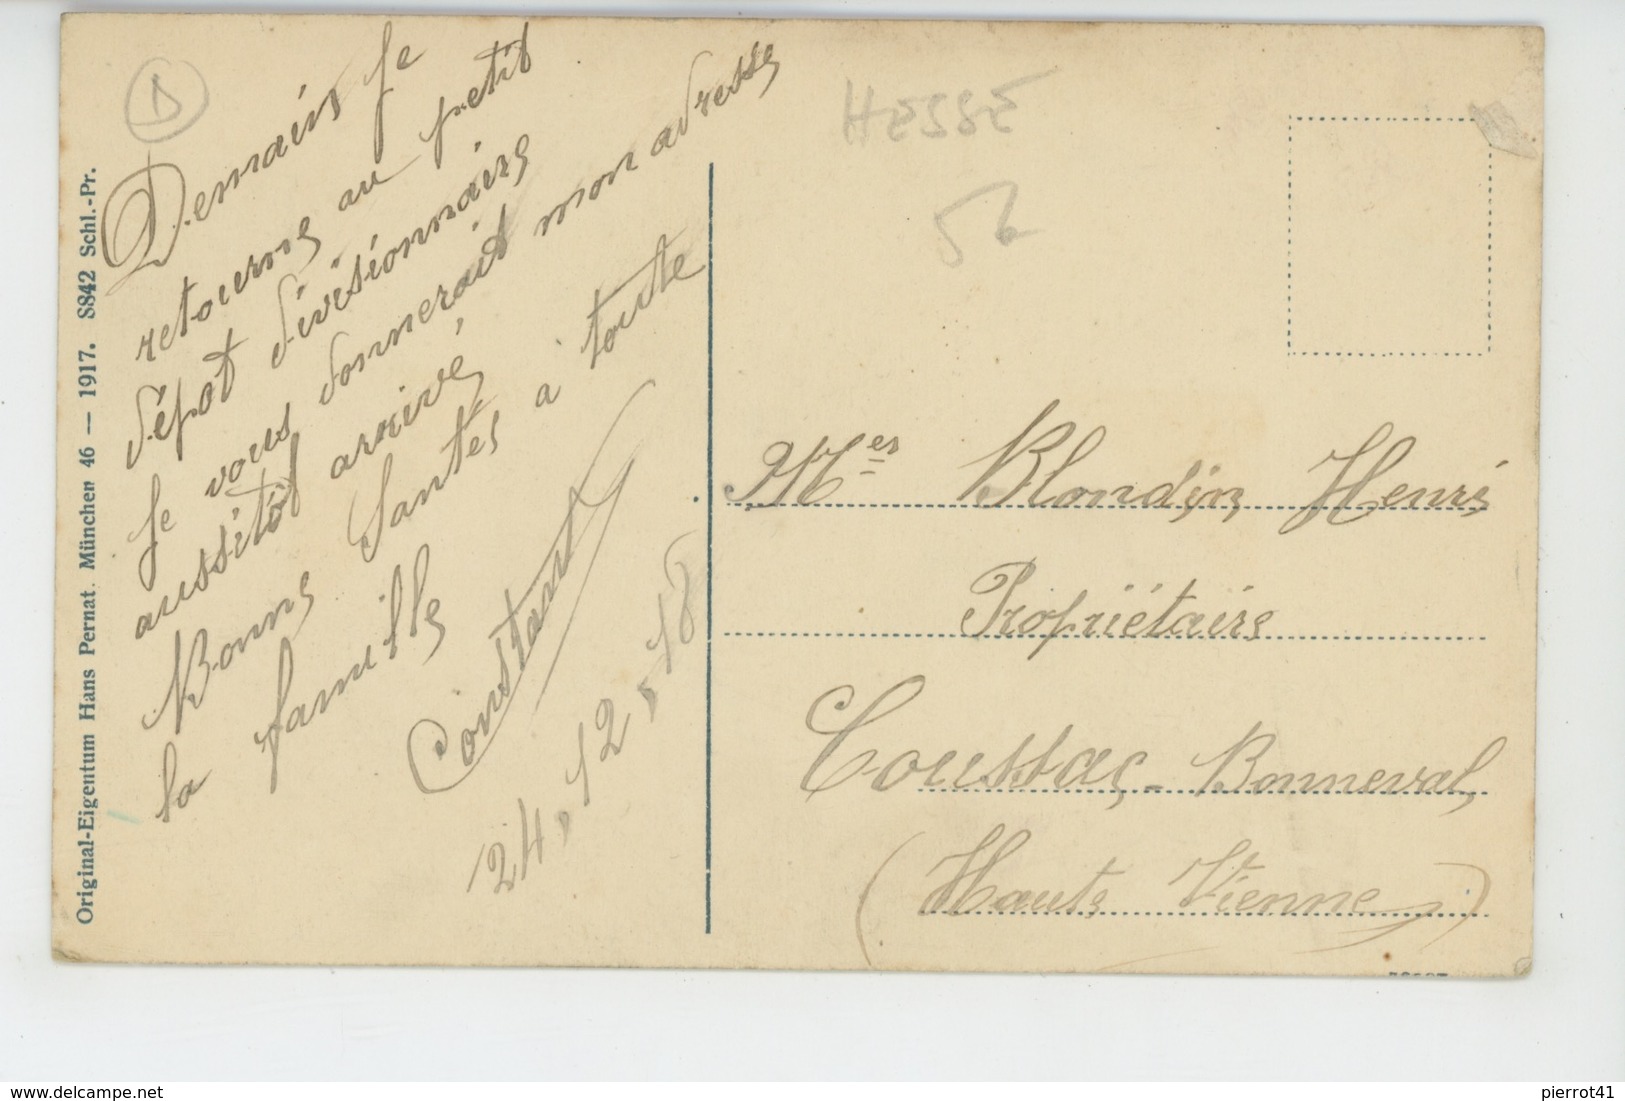 D
Demain je
retourne au petit
dépot divisionnaire
Je vous donnerait mon adresse
aussitôt arrivé,
Bonne Santés a toute
la famille
Constant
24.12.18
Original-Eigentum Hans Pernat. München 46 — 1917. S842 Schl.-Pr.
HESSE
Mer Blondin Henri
Propriétaire
Coussac-Bonneval,
(Haute Vienne)
delcampe.net
pierrot41